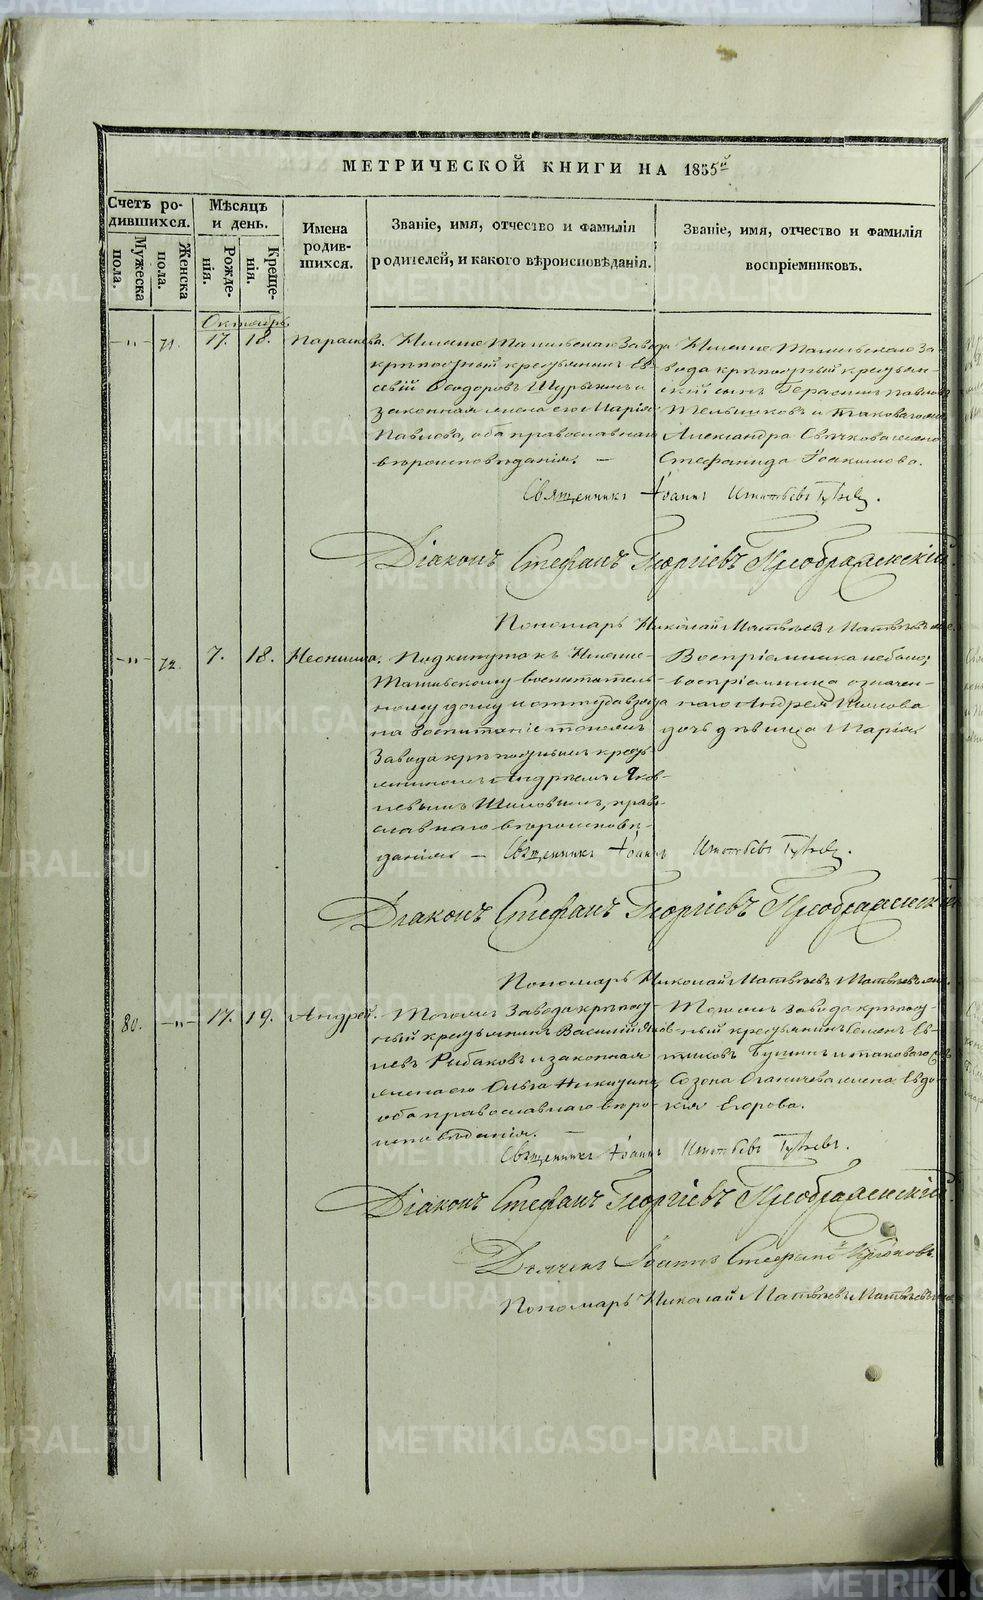 МЕТРИЧЕСКОЙ КНИГИ НА 1855й
Счетъ ро-
дившихся.
Мужеска
пола.
Женска
пола.
Мѣсяцъ
и день.
Рожде-
нія.
Креще-
нія.
Имена
родив-
шихся.
Званіе, имя, отчество и фамилія
родителей, и какого вѣроисповѣданія.
Званіе, имя, отчество и фамилія
воспріемниковъ.
Октябрь
-"- 71. 17. 18. Параскева.
Нижне Тагильскаго Завода
крѣпостный крестьянинъ Ев-
сѣвій Ѳеодоровъ и
законная жена его Марія
Павлова, оба православнаго
вѣроисповѣданія. —
Нижне Тагильскаго За-
вода крѣпостный крестьян-
скій сынъ Герасимъ Павловъ
Мельниковъ и таковаго же
Александра жена
Стефанида Іоакимова.
Священникъ Іоаннъ
Діаконъ Стефанъ Георгіевъ Преображенскій.
Пономарь Николай Матвѣевъ
-"- 72. 7. 18. Неонилла.
Подкинута къ Нижне-
Тагильскому воспитатель-
ному дому и оттуда взята
на воспитаніе тогожъ
Завода крѣпостнымъ кресть-
яниномъ Андреемъ Яков-
левымъ Шиловымъ, право-
славнаго вѣроисповѣ-
данія. — Священникъ Іоаннъ
Воспріемника небыло;
воспріемница означен-
наго Андрея Шилова
дочь дѣвица Марія
Діаконъ Стефанъ Георгіевъ Преображенскій
Пономарь Николай Матвѣевъ
80. -"- 17. 19. Андрей.
Тогожъ Завода крѣпост-
ный крестьянинъ Василій Яков-
левъ Рыбаковъ и законная
жена его Ольга Никитина,
оба православнаго вѣро-
исповѣданія.
Тогожъ завода крѣпост-
ный крестьянинъ Семенъ Ев-
тиховъ и таковаго же
Созона жена Евдо-
кія Егорова.
Священникъ Іоаннъ
Діаконъ Стефанъ Георгіевъ Преображенскій.
Дьячекъ Іоаннъ Стефановъ
Пономарь Николай Матвѣевъ
METRIKI.GASO-URAL.RU